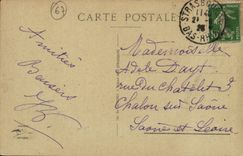 67
CARTE POSTALE
STRASBOURG
BAS-RHIN
Amitiés
Baisers
Mademoiselle
Adele Dayt
rue du Chatelet 3
Chalon sur Saône
Saône et Loire